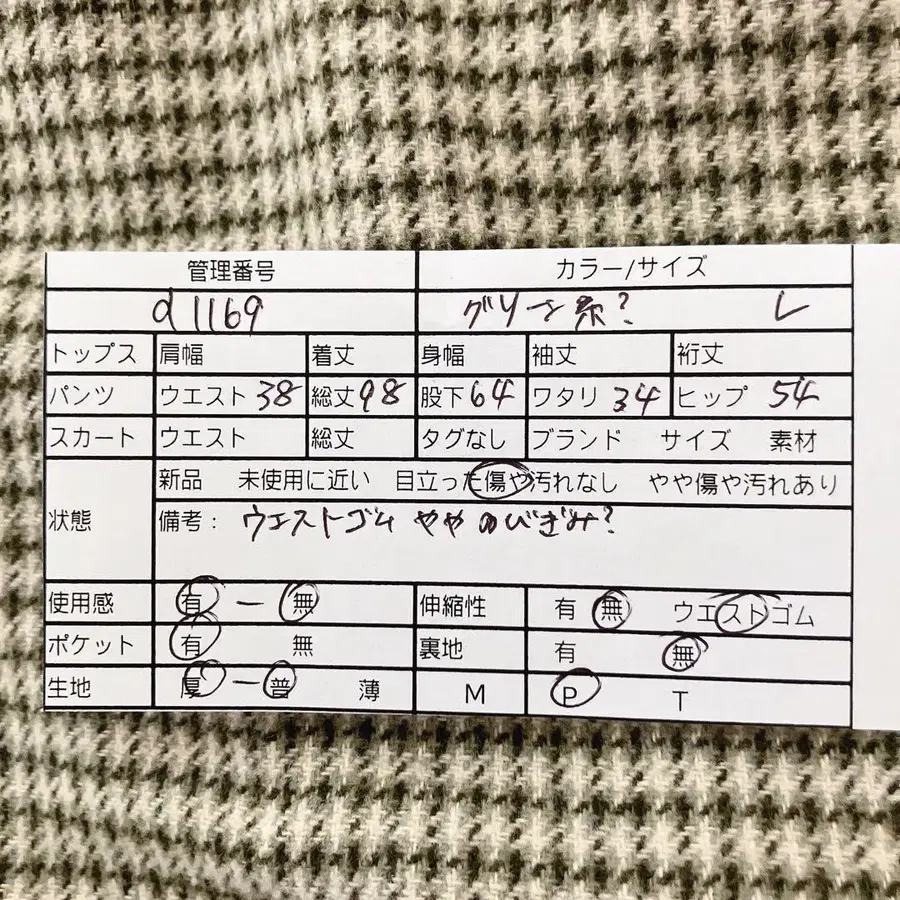 管理番号 カラー/サイズ
d1169 グリーン系? L
トップス 肩幅 着丈 身幅 袖丈 裄丈
パンツ ウエスト 38 総丈 98 股下 64 ワタリ 34 ヒップ 54
スカート ウエスト 総丈 タグなし ブランド サイズ 素材
状態 新品 未使用に近い 目立った傷や汚れなし やや傷や汚れあり
備考: ウエストゴム ややのびぎみ?
使用感 有 ー 無 伸縮性 有 無 ウエストゴム
ポケット 有 無 裏地 有 無
生地 厚 ー 普 薄 M P T